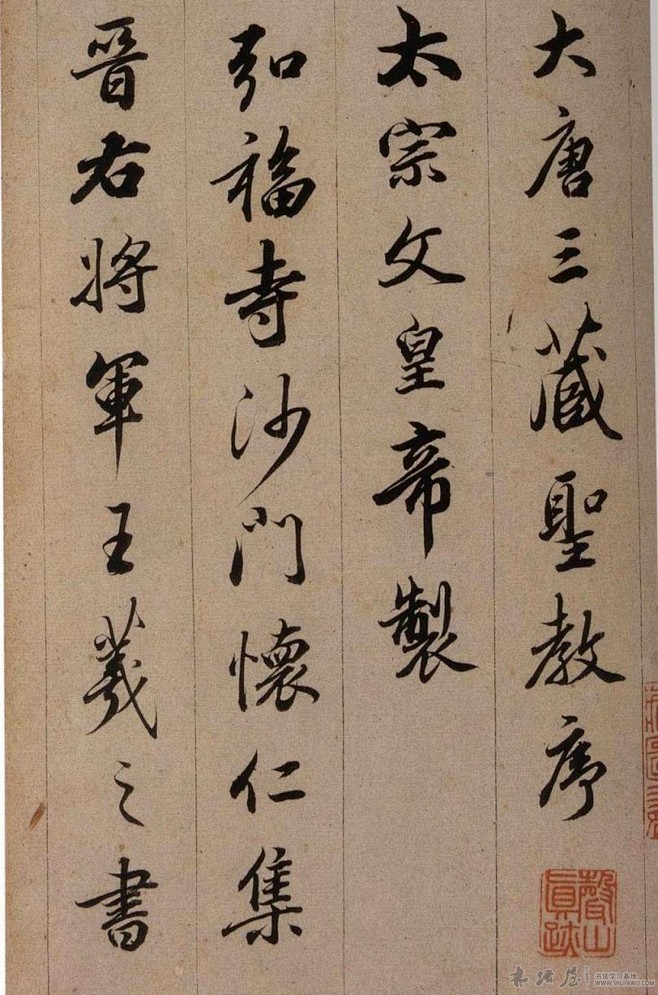 大唐三藏聖教序
太宗文皇帝製
弘福寺沙門懷仁集
晉右將軍王羲之書
書法学习基地
WWW.SHUFAWU.COM